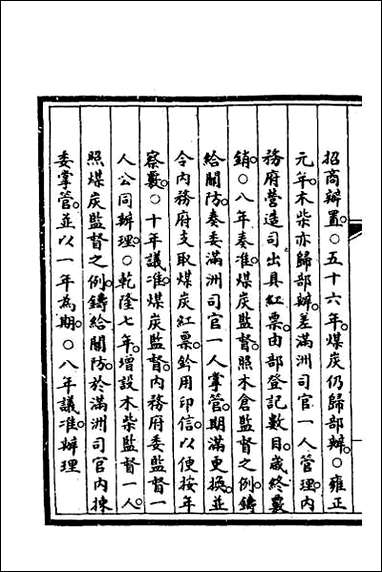 招商辦置○五十六年煤炭仍歸部辦○雍正
元年木柴亦歸部辦差滿洲司官一人管理內
務府營造司出具紅票由部登記數目歲終覈
銷○八年奏准煤炭監督照木倉監督之例鑄
給關防奏委滿洲司官一人掌管期滿更換並
令內務府支取煤炭紅票鈐用印信以便按年
察覈○十年議准煤炭監督內務府委監督一
人公同辦理○乾隆七年增設木柴監督一人
照煤炭監督之例鑄給關防於滿洲司官內揀
委掌管並以一年為期○八年議准辦理